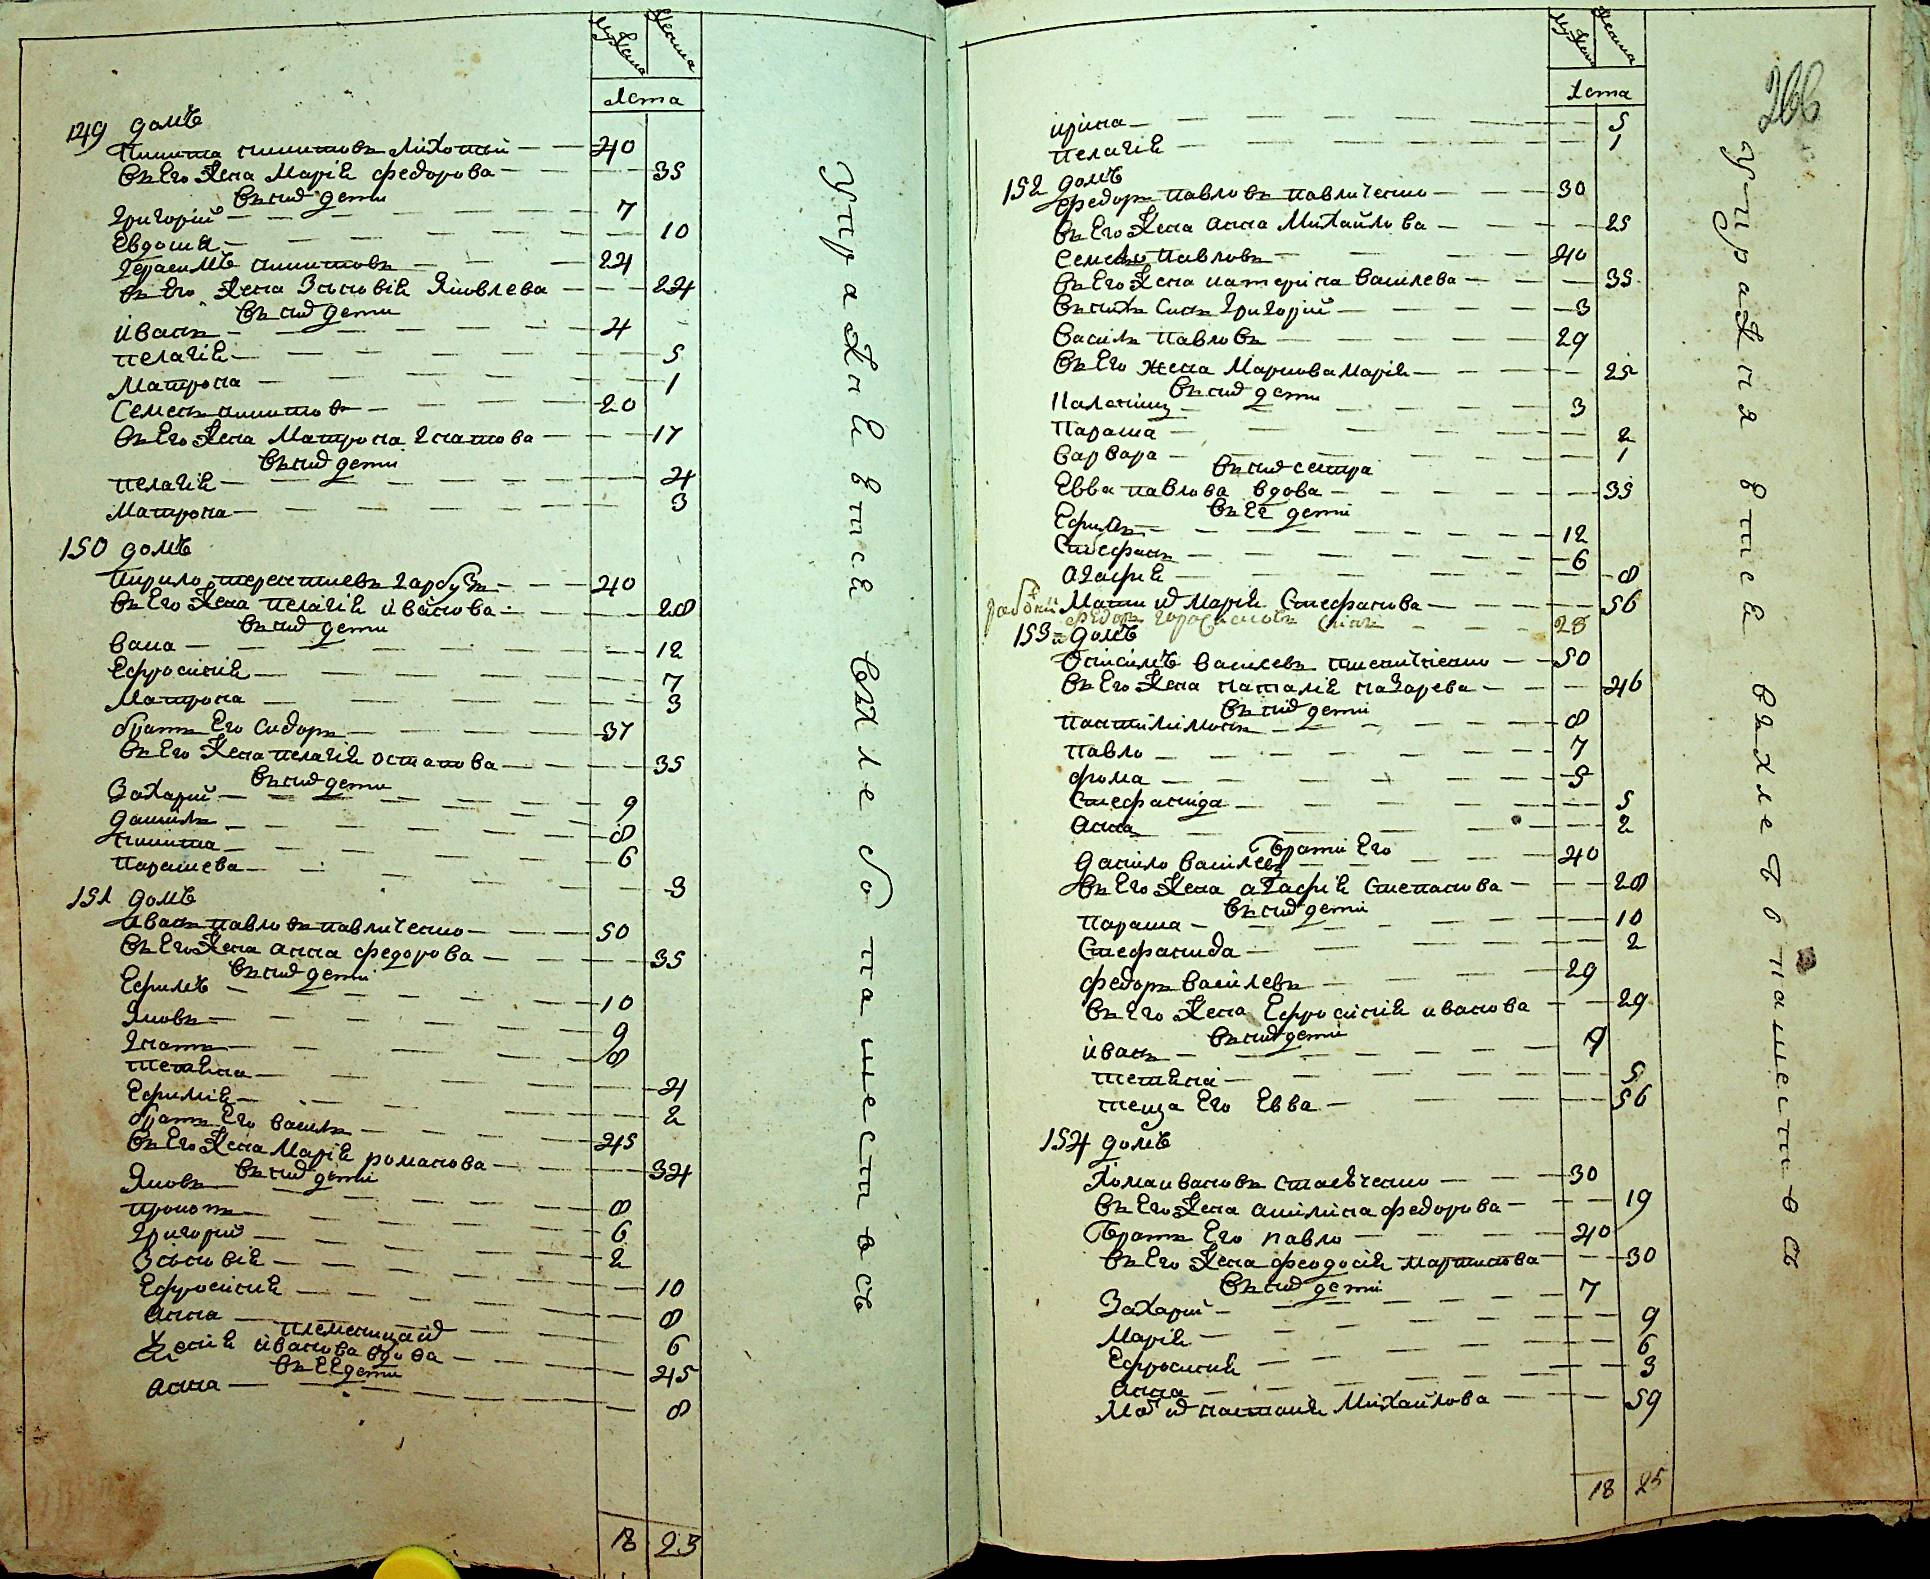 Мужска Женска
Лета
149 домъ
Никита никитовъ Лихотый 40
въ Его Жена Марiя федорова 35
въ них дети
Григорiй 7
Евдокiя 10
Герасимъ никитовъ 24
въ Его Жена Зѣновiя Яковлева 24
въ них дети
йванъ 4
пелагiя 5
Матрона 1
Семенъ никитовъ 20
въ Его Жена Матрона Гнатова 17
въ них дети
пелагiя 4
Матрона 3
150 домъ
Кирило терентиевъ Гарбузъ 40
въ Его Жена пелагiя йванова 28
въ них дети
вана 12
Ефросiнiя 7
Матрона 3
братъ Его Сидоръ 37
въ Его Жена пелагiя остапова 35
въ них дети
Захарiй 9
данiилъ 8
никита 6
парашева 3
151 домъ
йванъ павловъ павличенко 50
въ Его Жена анна федорова 35
въ них дети
Ефимъ 10
Яковъ 9
Гнатъ 8
тетяна 4
Ефимiя 2
братъ Его василь 45
въ Его Жена Марiя романова 34
въ них дети
Яковъ 8
прокопъ 6
Григорiй 2
Зѣновiя 10
Ефросiнiя 8
анна 6
племеница их
Ксенiя йванова вдова 45
въ Еѣ дети
анна 8
18 23
Упражнявтся въ хлебопашествовъ
Мужска Женска
Лета
266
ирина 5
пелагiя 1
152 домъ
федоръ павловъ павличенко 30
въ Его Жена анна Михайлова 25
Семенъ павловъ 40
въ Его Жена катерiна василева 35
въ нихъ Синъ Григорiй 3
василь павловъ 29
въ Его жена Маркова Марiя 25
въ них дети
Параша 2
варвара 1
въ них сестра
Евва павлова вдова 35
въ Еѣ детi
Ефимъ 12
Стефанъ 6
агафiя 8
Мати их Марiя Стефанова 56
28
153 домъ
Онiсiмъ василевъ
50
въ Его Жена наталiя назарева 46
въ них детi
пантилiмонъ 8
павло 7
фома 5
Стефанiда 5
анна 2
братi Его
данило василевъ 40
въ Его Жена агафiя степанова 28
въ них детi
параша 10
Стефанида 2
федоръ василевъ 29
въ Его Жена Ефросiнiя иванова 29
въ них детi
йванъ 9
тетянa 5
теща Его Евва 56
154 домъ
Хома ивановъ 30
въ Его Жена акiлина федорова 19
братъ Его павло 40
въ Его Жена феодосiя мартинова 30
въ них детi
Захарiй 7
Марiя 9
Ефросинiя 6
анна 3
Мат их настасiя Михайлова 59
18 25
Упражнявтся въ хлебопашествовъ